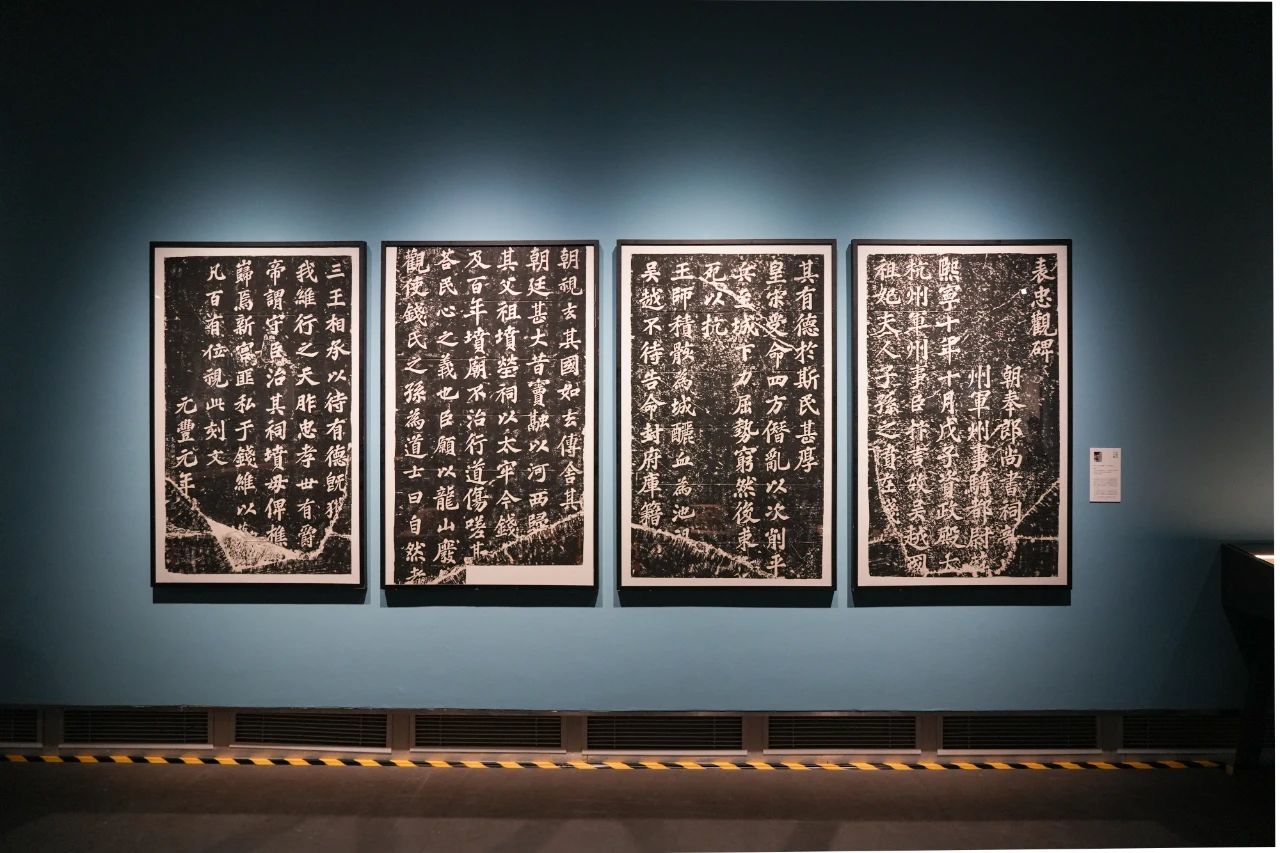 表忠觀碑
朝奉郎尚書祠
州軍州事騎都尉
熙寧十年十月戊子資政殿大
杭州軍州事臣抃言故吳越國
祖妣夫人子孫之墳在
其有德於斯民甚厚
皇宋受命四方僭亂以次削平
兵至城下力屈勢窮然後束
死以抗
王師積骸為城釃血為池
吳越不待告命封府庫籍
朝視去其國如去傳舍其
朝廷甚大昔竇融以河西歸
其父祖墳塋祠以太牢今錢
及百年墳廟不治行道傷嗟甚
荅民心之義也臣願以龍山廢
觀使錢氏之孫為道士曰自然者
三王相承以待有德既獲
我維行之天胙忠孝世有爵
帝謂守臣治其祠墳毋俾樵
巋焉新宮匪私于錢維以
凡百有位視此刻文
元豐元年